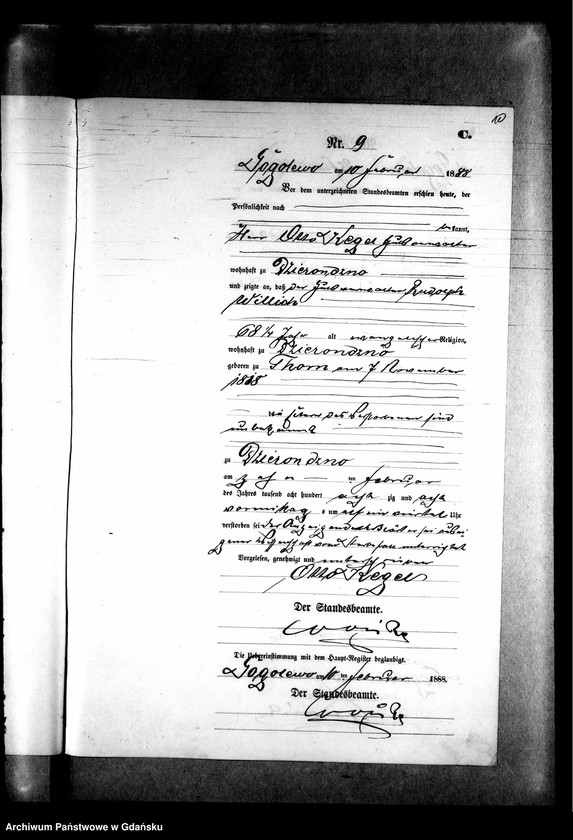 10
C.
Nr. 9
Gogolewo am 10 Februar 1888
Vor dem unterzeichneten Standesbeamten erschien heute, der
Persönlichkeit nach
bekannt,
Herr Otto Kegel Gutsverwalter
wohnhaft zu Dzierondzno
und zeigte an, daß der Gutsverwalter Rudolph
Willich
68 ¼ Jahr alt evangelischer Religion,
wohnhaft zu Dzierondzno
geboren zu Thorn am 7 November
die Eltern des Verstorbenen sind
unbekannt
zu Dzierondzno
am zehn ten Februar
des Jahres tausend acht hundert acht zig und acht
Vormittag um elf ein viertel Uhr
verstorben sei der Anzeigende
vom Sterbefall unterrichtet
Vorgelesen, genehmigt und unterschrieben
Otto Kegel
Der Standesbeamte.
Die Uebereinstimmung mit dem Haupt-Register beglaubigt.
Gogolewo am 10 ten Februar 1888.
Der Standesbeamte.
Archiwum Państwowe w Gdańsku